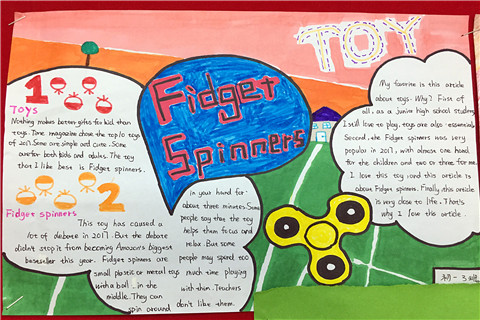 TOY
Fidget
Spinners
1
Toys
Nothing makes better gifts for kid than
toys. Time magazine chose the top 10 toys
of 2017. Some are simple and cute. Some
are for both kids and adults. The toy
that I like best is Fidget spinners.
2
Fidget spinners
This toy has caused a
lot of debate in 2017. But the debate
didn't stop it from becoming Amazon's biggest
bestseller this year. Fidget spinners are
small plastic or metal toys
with a ball in the
middle. They can
spin around
in your hand for
about three minutes. Some
people say that the toy
helps them focus and
relax. But some
people may spend too
much time playing
with them. Teachers
don't like them.
My favorite is this article
about toys. Why? First of
all, as a junior high school student,
I still love to play, toys are also essential.
Second, the Fidget spinners was very
popular in 2017, with almost one hand
for the children and two or three for me.
I love this toy and this article is
about Fidget spinners. Finally, this article
is very close to life. That's
why I love this article.
初一3班